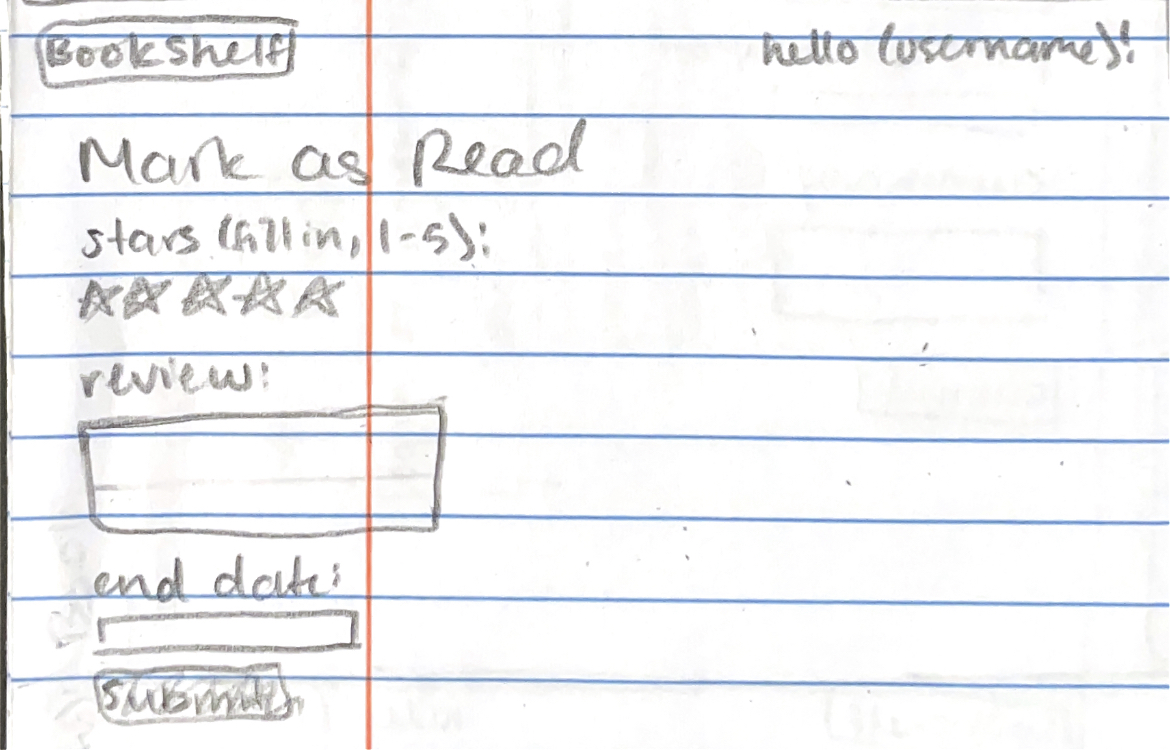 BookShelf
hello (username)!
Mark as Read
stars (fill in, 1-5):
review:
end date:
submit